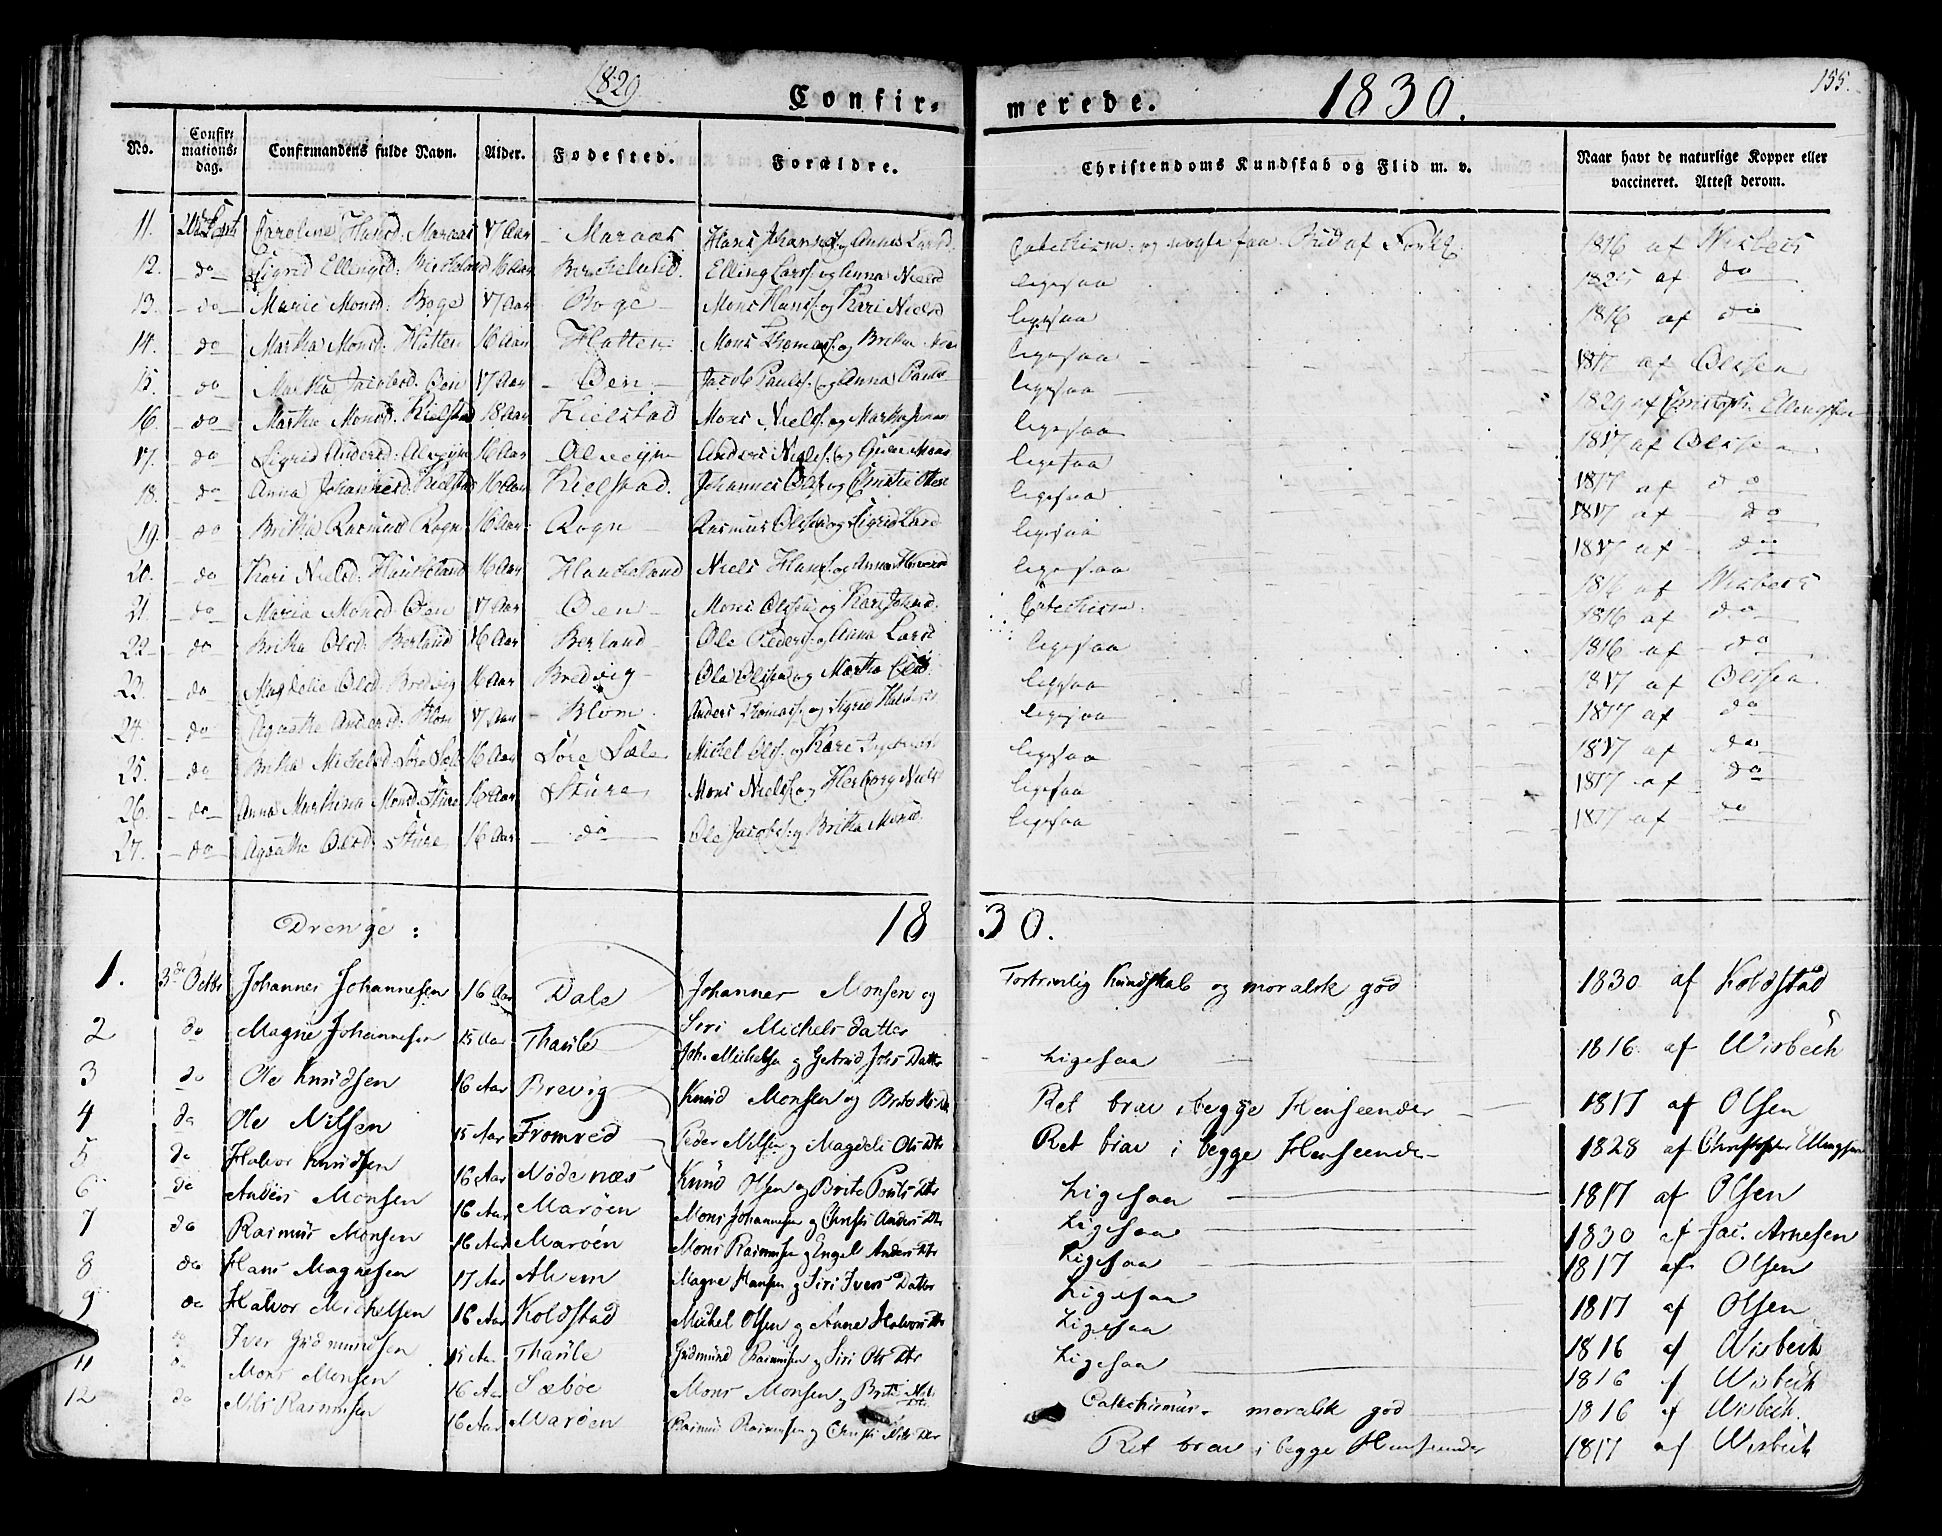 1829 Confirmerede. 1830. 155.
No. Confirmationsdag. Confirmandens fulde Navn. Alder. Fødested. Forældre. Christendoms Kundskab og Flid m. v. Naar havt de naturlige Kopper eller vaccineret. Attest derom.
11. Caroline Hansd: Maraas 17 Aar Maraas Hans Johans og Anna Larsd. Catechism: og nogle faa Bud af Forkl. 1816 af Wisbech
12. do Sigrid Ellingsd: Birkeland 16 Aar Birkeland. Elling Larss: og Anna Nielsd ligesaa 1825 af do
13. do Marie Monsd: Boge 17 Aar Boge Mons Hanss: og Kari Nielsd ligesaa 1816 af do
14. do Martha Monsd: Hatten 16 Aar Hatten Mons Thomass: og Britha ligesaa 1817 af Olssen
15. do Martha Jacobsd: Øen 17 Aar Øen Jacob Pauls: og Anna Pauls ligesaa 1829 af Christoph: Ellingsen
16. do Martha Monsd: Kielstad 18 Aar Kielstad Mons Niels: og Martha ligesaa 1817 af Olssen
17. do Sigrid Andersd: Alvejm 16 Aar Alvejm Anders Niels: og Mons ligesaa 1817 af do
18. do Anna Johannesd: Kielstad 16 Aar Kielstad. Johannes Ols: og Christie ligesaa 1817 af do
19. do Britha Rasmusd Rogn 16 Aar Rogn Rasmus Olsen og Sigrid Larsd ligesaa 1817 af do
20. do Kari Nielsd: Haukeland 16 Aar Haukeland Niels Hans: og Anna ligesaa 1816 af Wisbech
21. do Maria Monsd: Øen 17 Aar Øen Mons Olssen og Kari Johnd. Catechism: 1816 af do
22 do Britha Olsd: Berland 16 Aar Berland Ole Peders: og Anna Larsd ligesaa 1816 af do
23. do Magdelie Olsd: Bredvig 16 Aar Bredvig Ole Olssen og Martha Olsd. ligesaa 1817 af Olssen
24. do Agathe Andersd: Blom 17 Aar Blom. Anders Thomass: og Sigrid ligesaa 1817 af do
25. do Britha Michelsd. Søre Sæle 16 Aar Søre Sæle Michel Ols: og Kari ligesaa 1817 af do
26. do Anna Marthina Monsd. Sture 16 Aar Sture Mons Niels: og Herborg Nielsd ligesaa 1817 af do
27. do Agathe Olsd: Sture 16 Aar do Ole Jacobs: og Britha Monsd. ligesaa 1817 af do
Drenge: 1830.
1. 3de Octbr Johannes Johannesen 16 Aar Dale Johannes Monsen og Siri Michels datter Fortrinlig Kundskab og moralsk god 1830 af Koldstad
2 do Magne Johannesen 15 Aar Thaule Joh. Michelsen og Gertrud Johs Datter Ligesaa 1816 af Wisbech
3 do Ole Knudsen 16 Aar Brevig Knud Monsen og Brite Ret brav i begge Henseender 1817 af Olsen
4 do Ole Nilsen 15 Aar Fromred Peder Nilsen og Magdeli Ols Dtr Ret brav i begge Henseender 1828 af Christopher Ellingsen
5 do Halvor Knudsen 16 Aar Nødenæs Knud Olsen og Brite Pouls Dtr Ligesaa 1817 af Olsen
6 do Anders Monsen 16 Aar Marøen Mons Johannesen og Christi Anders Dtr Ligesaa 1830 af Jac. Arnesen
7 do Rasmus Monsen 16 Aar Marøen Mons Rasmusen og Engel Anders Dtr Ligesaa 1817 af Olsen
8 do Hans Magnesen 17 Aar Alvem Magne Hansen og Siri Ivers Datter Ligesaa 1817 af Olsen
9 do Halvor Michelsen 16 Aar Koldstad Michel Olsen og Anne Halvors Dtr Ligesaa 1816 af Wisbech
do Iver Gudmundsen 15 Aar Thaule Gudmund Rasmusen og Siri Ols Dtr Ligesaa 1816 af Wisbech
11 do Mons Monsen 16 Aar Sæbøe Mons Monsen og Brite Nils Dtr Catechismus. moralsk god 1816 af Wisbech
12 do Nils Rasmusen 16 Aar Marøen Rasmus Rasmusen og Christi Nils Dtr Ret brav i begge Henseender 1817 af Wisbech